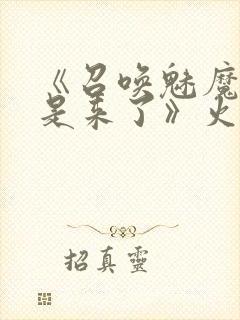 《召唤魅魔
是来了》火
招真靈